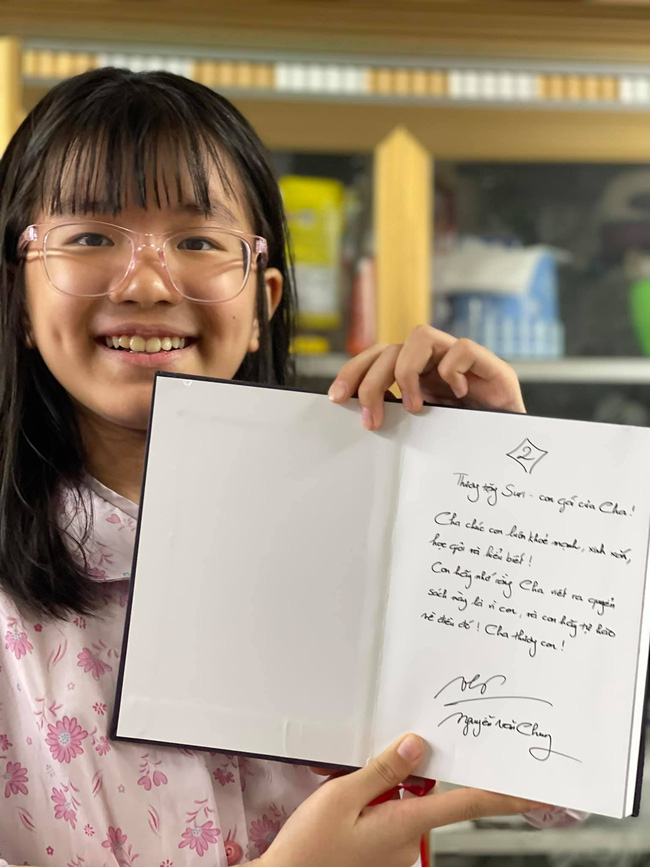 2
Thương tặng Sun - con gái của Cha!
Cha chúc con luôn khoẻ mạnh, xinh xắn,
học giỏi và hiểu biết!
Con hãy nhớ rằng Cha viết ra quyển
sách này là vì con, và con hãy tự hào
về điều đó! Cha thương con!
Nguyễn Văn Chung